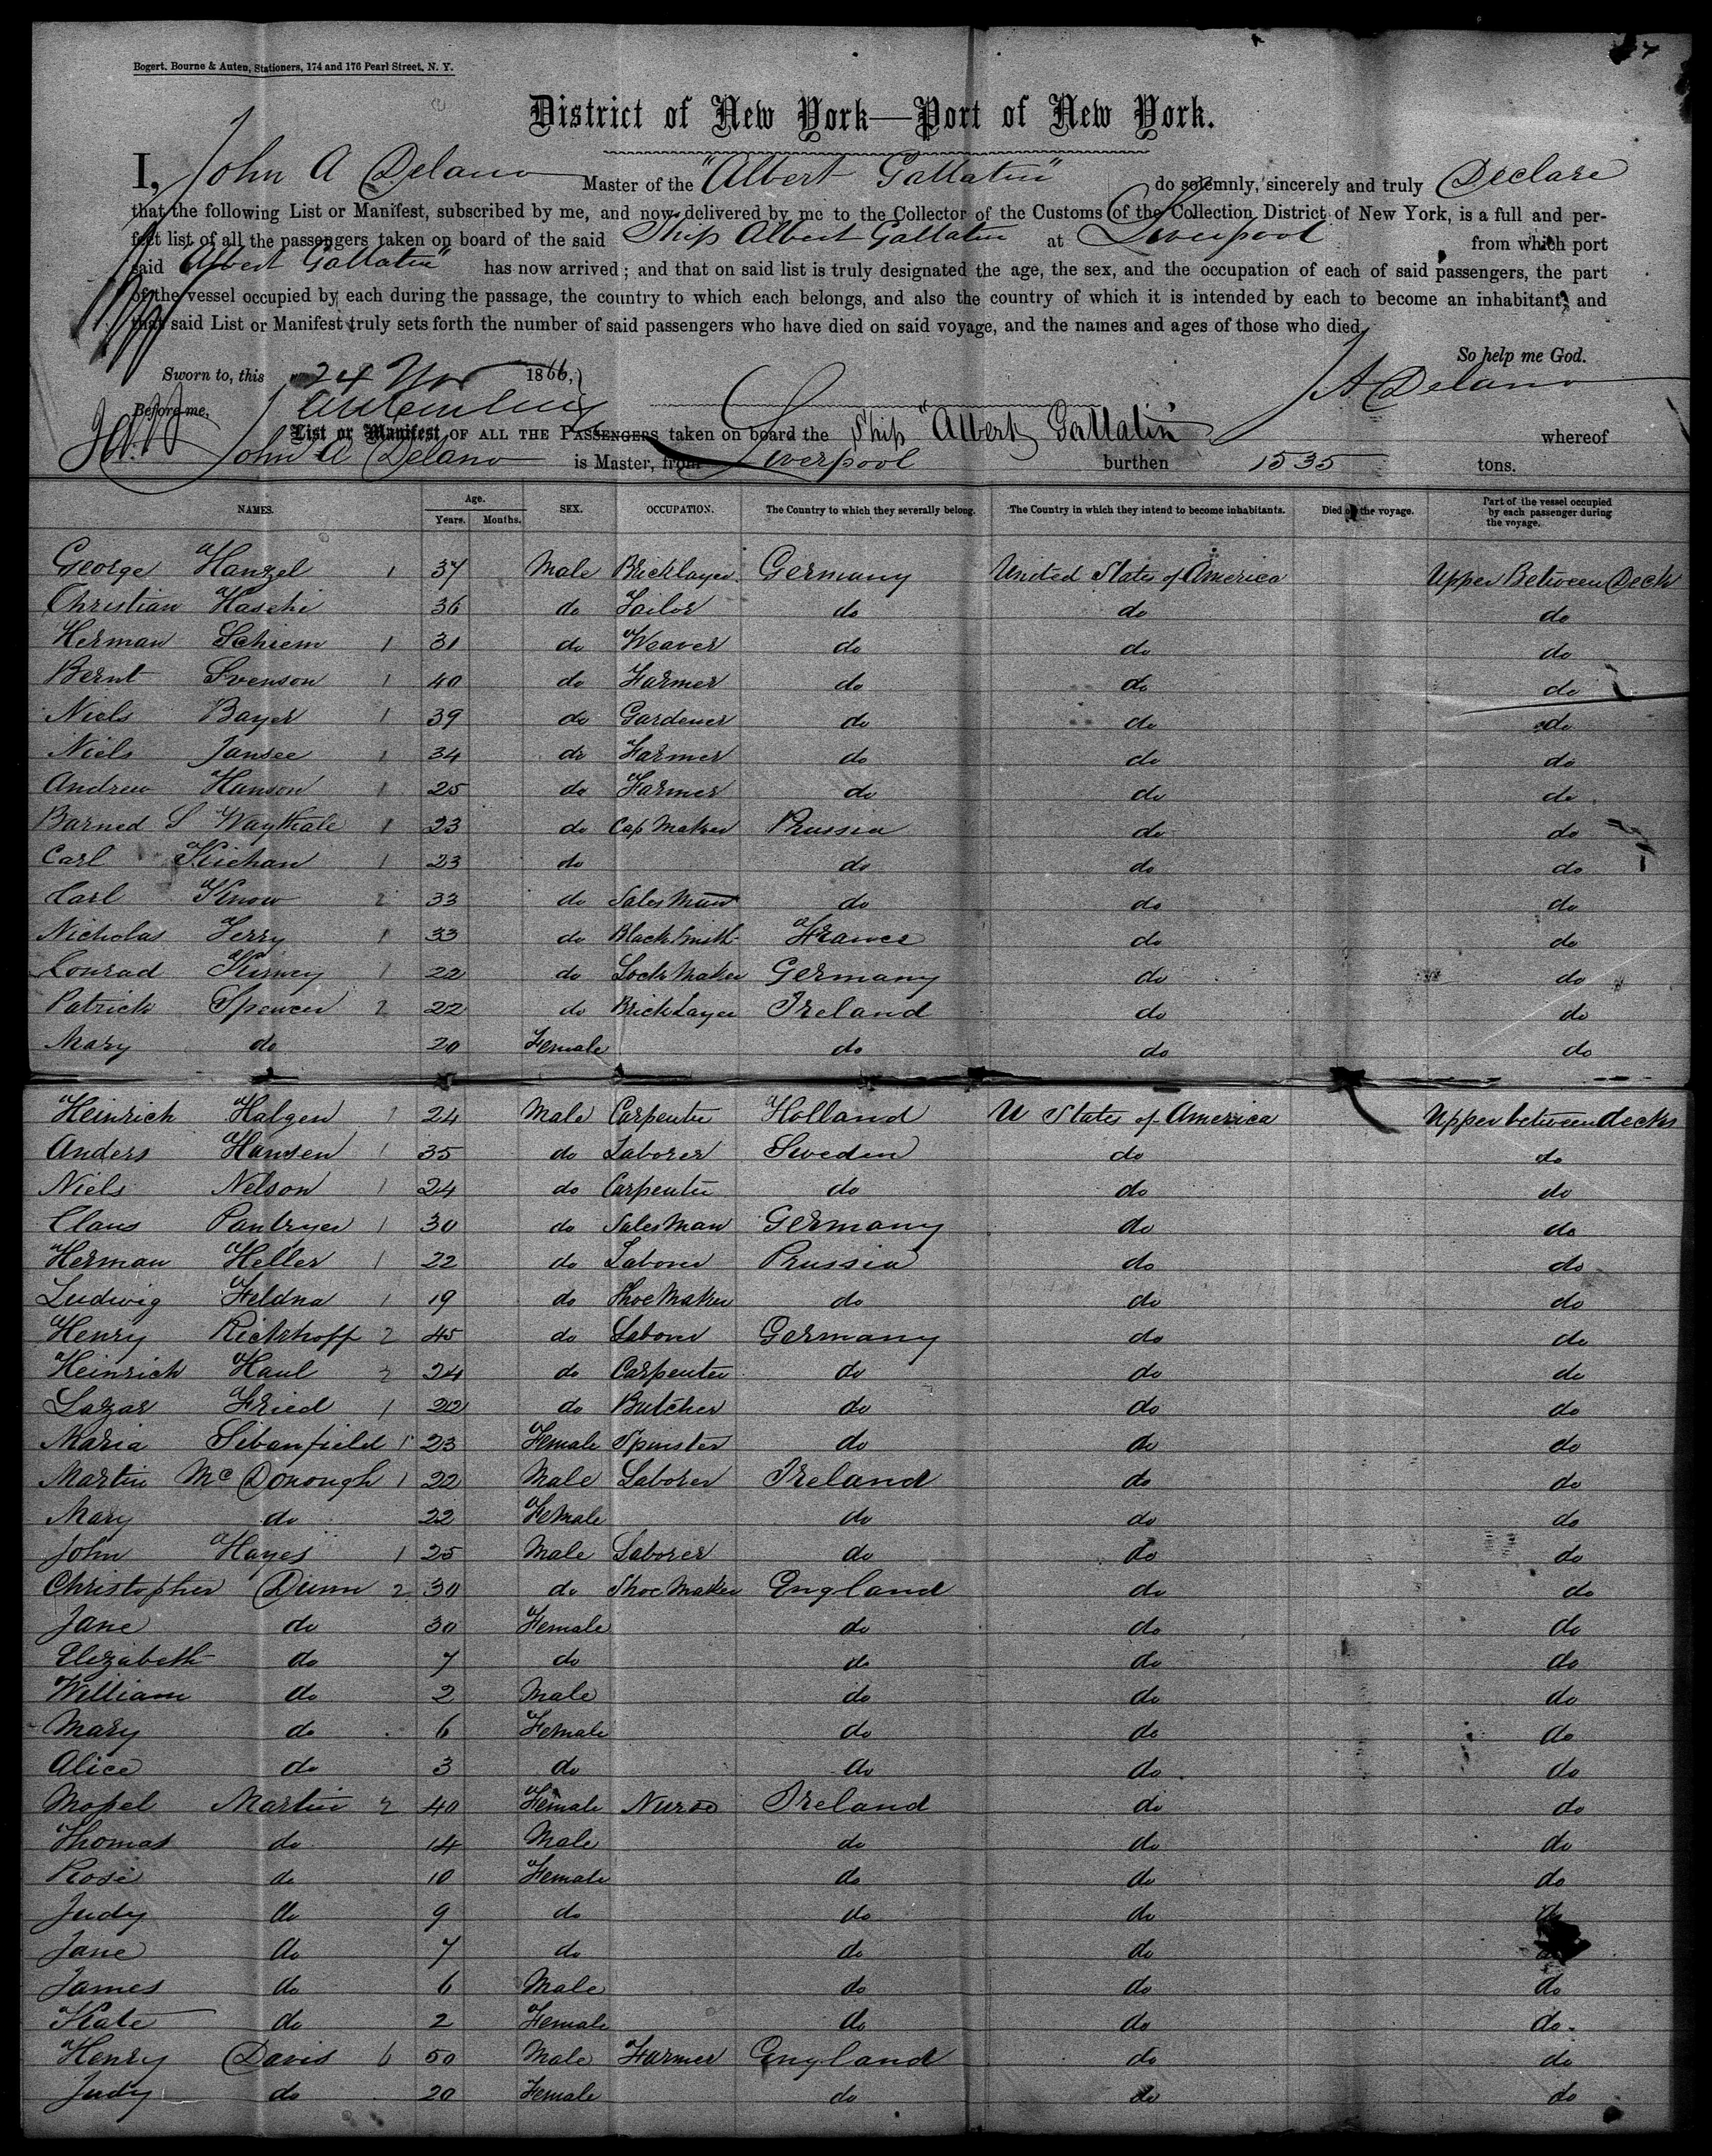 Bogert, Bourne & Auten, Stationers, 174 and 176 Pearl Street, N. Y.
District of New York—Port of New York.
I, John A Delano Master of the "Albert Gallatin" do solemnly, sincerely and truly Declare
that the following List or Manifest, subscribed by me, and now delivered by me to the Collector of the Customs of the Collection District of New York, is a full and per-
fect list of all the passengers taken on board of the said Ship Albert Gallatin at Liverpool from which port
said Albert Gallatin" has now arrived; and that on said list is truly designated the age, the sex, and the occupation of each of said passengers, the part
of the vessel occupied by each during the passage, the country to which each belongs, and also the country of which it is intended by each to become an inhabitant; and
that said List or Manifest truly sets forth the number of said passengers who have died on said voyage, and the names and ages of those who died.
So help me God.
Sworn to, this 24 Nov 1866, J A Delano
Before me,
List or Manifest OF ALL THE PASSENGERS taken on board the Ship "Albert Gallatin" whereof
John A Delano is Master, from Liverpool burthen 1535 tons.
NAMES. Age. Years. Months. SEX. OCCUPATION. The Country to which they severally belong. The Country in which they intend to become inhabitants. Died on the voyage. Part of the vessel occupied by each passenger during the voyage.
George Hanzel 1 37 Male Bricklayer Germany United State of America Upper Between Deck
Christian Haschi 36 do Tailor do do do
Herman Schiem 1 31 do Weaver do do do
Bernt Svenson 1 40 do Farmer do do do
Niels Bayer 1 39 do Gardener do do do
Niels Jansee 1 34 do Farmer do do do
Andrew Hanson 1 25 do Farmer do do do
Barned S 1 23 do Cap Maker Prussia do do
Carl 1 23 do do do do
Carl Know 2 33 do Sales Man do do do
Nicholas Ferry 1 33 do Black Smith France do do
Conrad 1 22 do Lock Maker Germany do do
Patrick Spencer 2 22 do Brick Layer Ireland do do
Mary do 20 Female do do do
Heinrich Halgen 1 24 Male Carpenter Holland U States of America Upper between decks
Anders Hansen 1 35 do Laborer Sweden do do
Niels Nelson 1 24 do Carpenter do do do
Claus Pantryer 1 30 do Sales Man Germany do do
Herman Heller 1 22 do Laborer Prussia do do
Ludwig Feldna 1 19 do Shoe Maker do do do
Henry Rickhoff 2 45 do Laborer Germany do do
Heinrich Haul 2 24 do Carpenter do do do
Lazar Fried 1 22 do Butcher do do do
Maria Sibanfield 1 23 Female Spinster do do do
Martin McDonough 1 22 Male Laborer Ireland do do
Mary do 22 Female do do do
John Hayes 1 25 Male Laborer do do do
Christopher Dunn 2 30 do Shoe Maker England do do
Jane do 30 Female do do do
Elizabeth do 7 do do do do
William do 2 Male do do do
Mary do 6 Female do do do
Alice do 3 do do do do
Martin 2 40 Female Nurse Ireland do do
Thomas do 14 Male do do do
Rose do 10 Female do do do
Judy do 9 do do do do
Jane do 7 do do do do
James do 6 Male do do do
Kate do 2 Female do do do
Henry Davis 6 50 Male Farmer England do do
Judy do 20 Female do do do